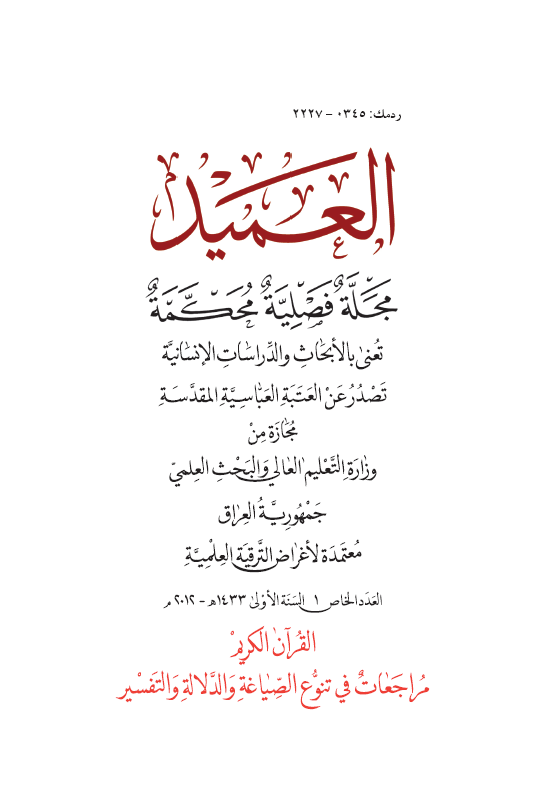 ردمك: ٠٣٤٥ - ٢٢٢٧
العميد
مَجَلَّةٌ فَصْلِيَّةٌ مُحَكَّمَةٌ
تُعنىٰ بالأبحَاثِ والدِّراسَاتِ الإنسَانيَّة
تَصْدُرُ عَنْ العَتَبَةِ العَبَّاسيَّةِ المقدَّسَةِ
مُجَازَة مِنْ
وزَارَةِ التَّعْليم العَالي وَالبَحْثِ العِلميّ
جَمْهُوريَّةُ العِراق
مُعتمَدَة لأغْراض التَّرقيَة العِلْميَّةِ
العَدَد الخاص ١ السَنَة الأوْلىٰ ١٤٣٣هـ - ٢٠١٢ م
القُرآنُ الكَريمُ
مُراجَعَاتٌ في تنوُّع الصِّيَاغَةِ وَالدَّلالَةِ وَالتَفسْير